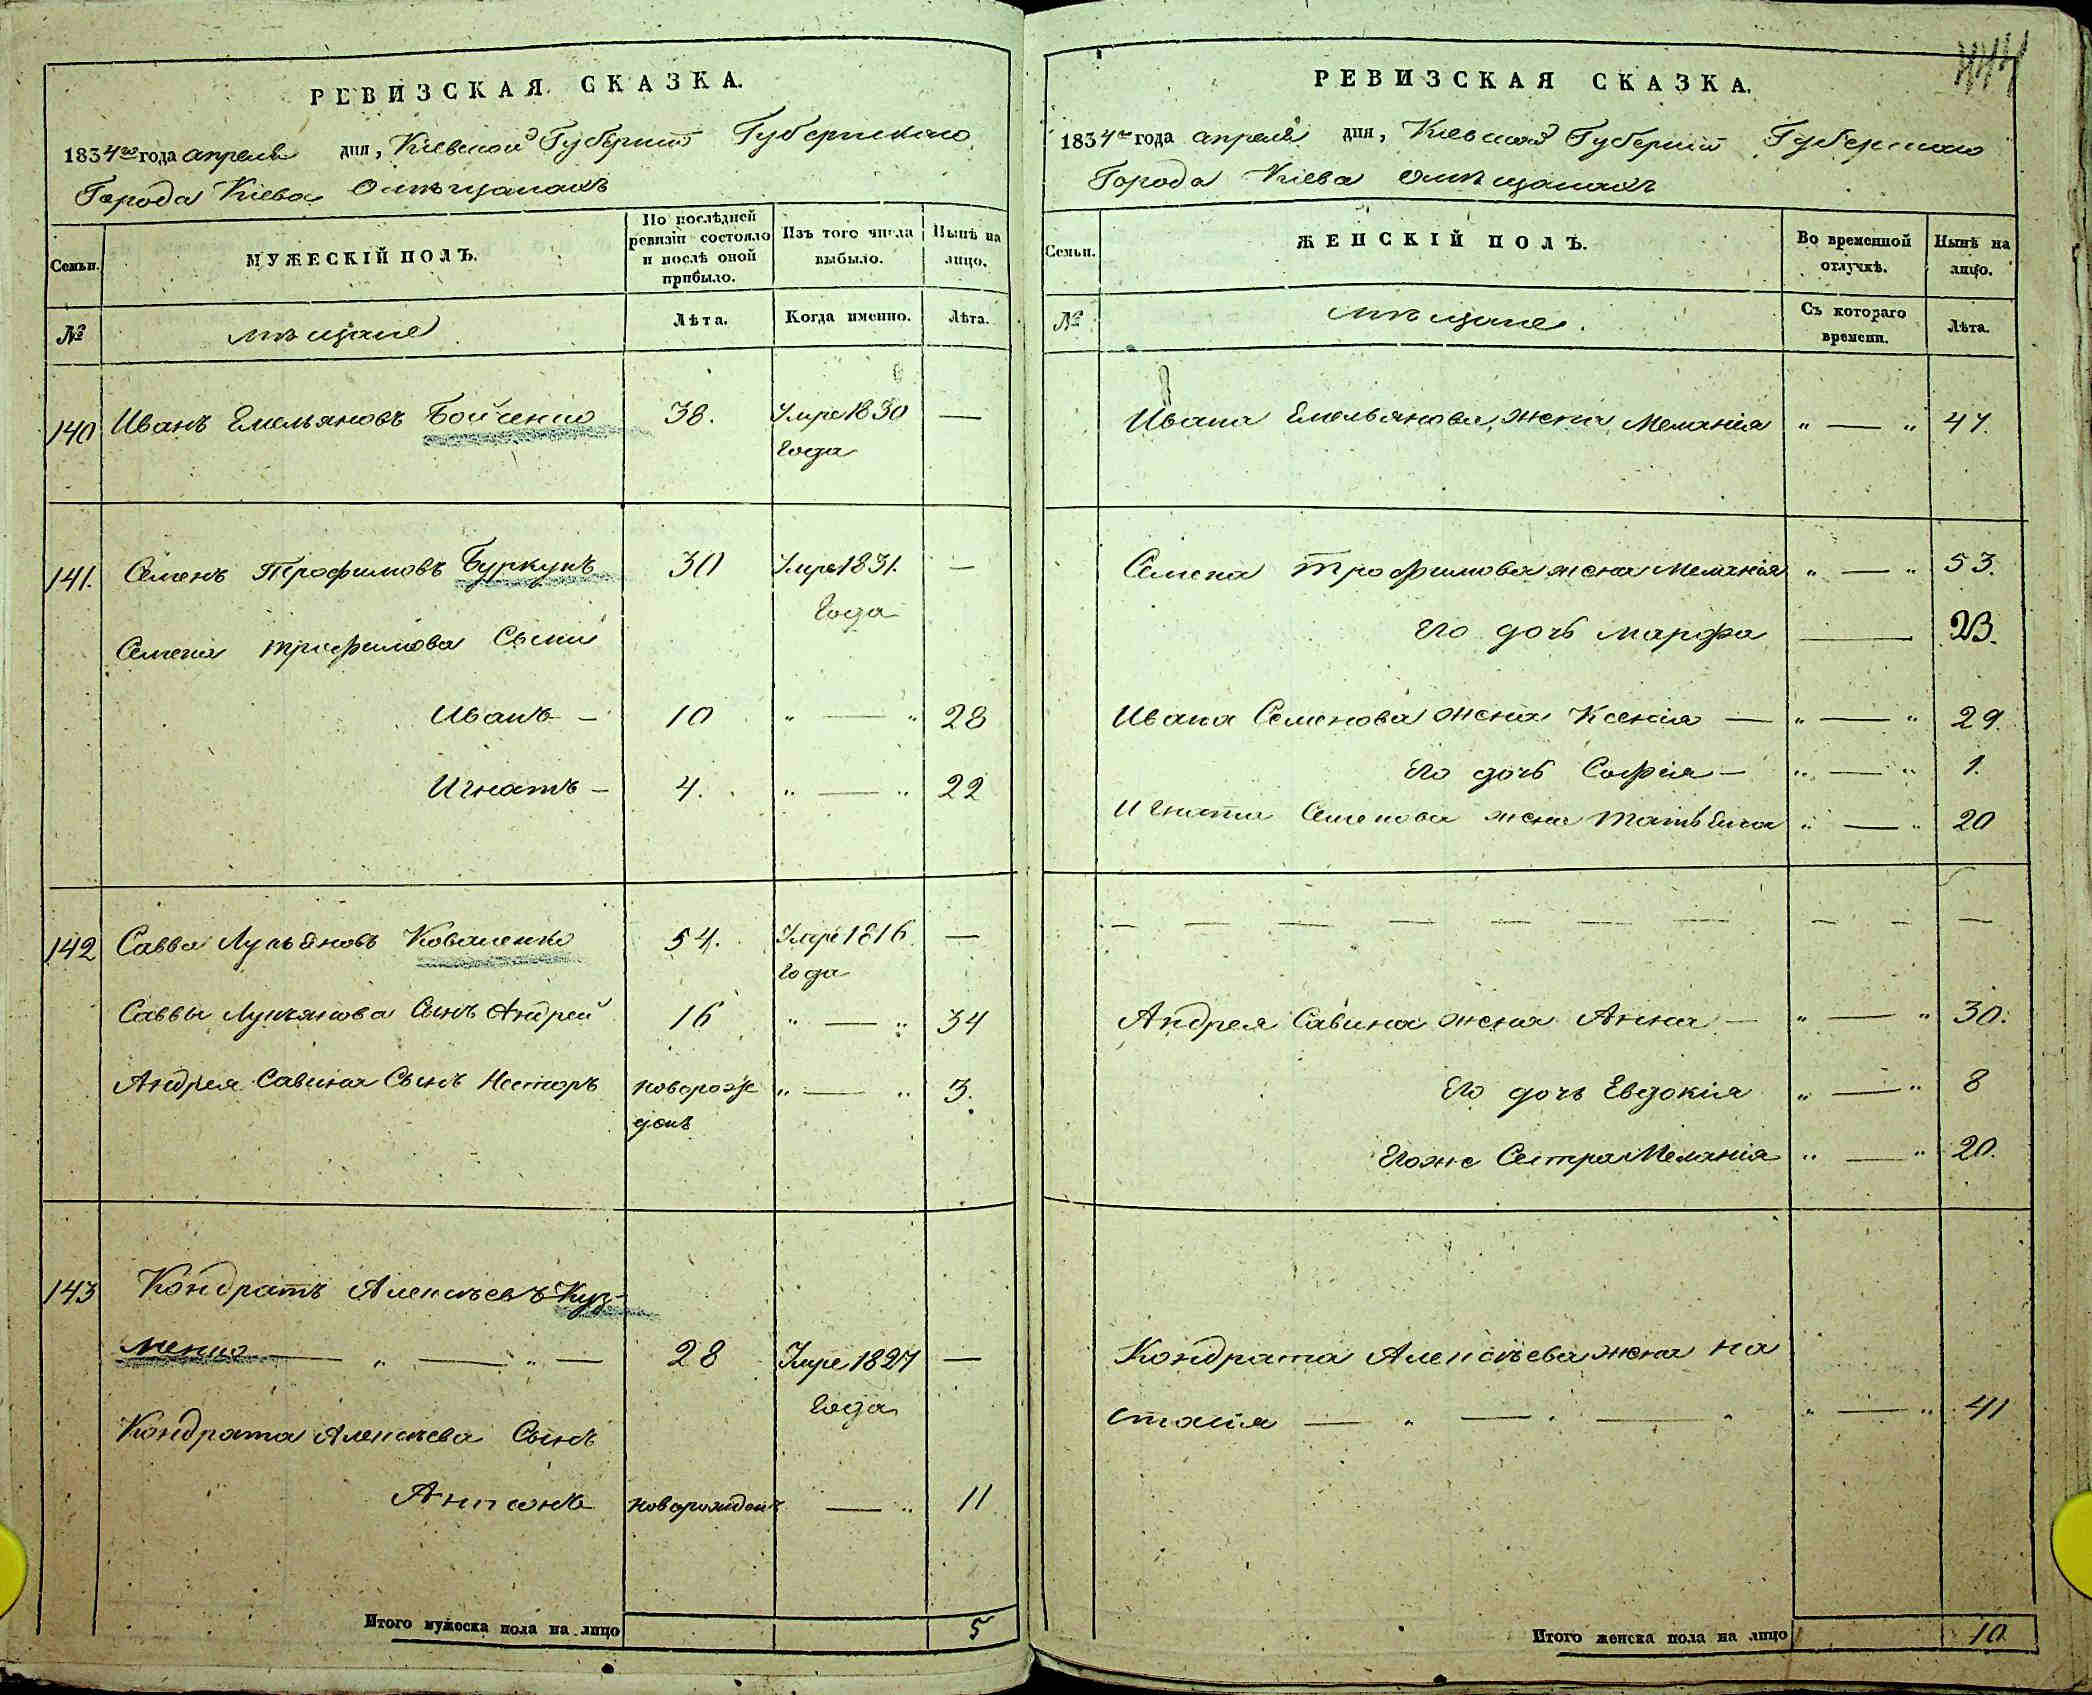 РЕВИЗСКАЯ СКАЗКА.
1834го года апреля дня, Кіевской Губерніи Губернскаго
Города Кіева Омѣщанахъ
Семьи.
МУЖЕСКІЙ ПОЛЪ.
По послѣдней ревизіи состояло и послѣ оной прибыло.
Изъ того числа выбыло.
Нынѣ на лицо.
№
мѣщане
Лѣта.
Когда именно.
Лѣта.
140 Иванъ Емельяновъ Бойченко 38. Умре 1830 —
Года
141. Семенъ Трофимовъ Буркунъ 30 Умре 1831. —
Года
Семена трофимова Сыны
Иванъ — 10 " — " 28
Игнатъ — 4. " — " 22
142 Савва Лукьяновъ Коваленко 54. Умре 1816. —
года
Саввы Лукьянова Сынъ Андрей 16 " — " 34
Андрея Савина Сынъ Несторъ новорож " — " 3.
денъ
143 Кондратъ Алексѣевъ Куз-
менко — " — " — 28 Умре 1827 —
Года
Кондрата Алексѣева Сынъ
Антонъ новорожденъ — " 11
Итого мужеска пола на лицо 5
РЕВИЗСКАЯ СКАЗКА.
1834го года апреля дня, Кіевской Губерніи Губернскаго
Города Кіева Омѣщанахъ
Семьи.
ЖЕНСКІЙ ПОЛЪ.
Во временной отлучкѣ.
Нынѣ на лицо.
№
мѣщане.
Съ котораго времени.
Лѣта.
Ивана Емельянова жена Меланія " — " 47.
Семена трофимова жена Меланія " — " 53.
Его дочь марфа — 23.
Ивана Семенова жена Ксенія — " — " 29.
Его дочь Софія — " — " 1.
Игната Семенова жена татьяна " — " 20
— — — — — — — — — —
Андрея Савина жена Анна — " — " 30.
Его дочь Евдокія " — " 8
Егоже Сестра Меланія " — " 20.
Кондрата Алексѣева жена на
стасія — " — " — " " — " 41
Итого женска пола на лицо 10